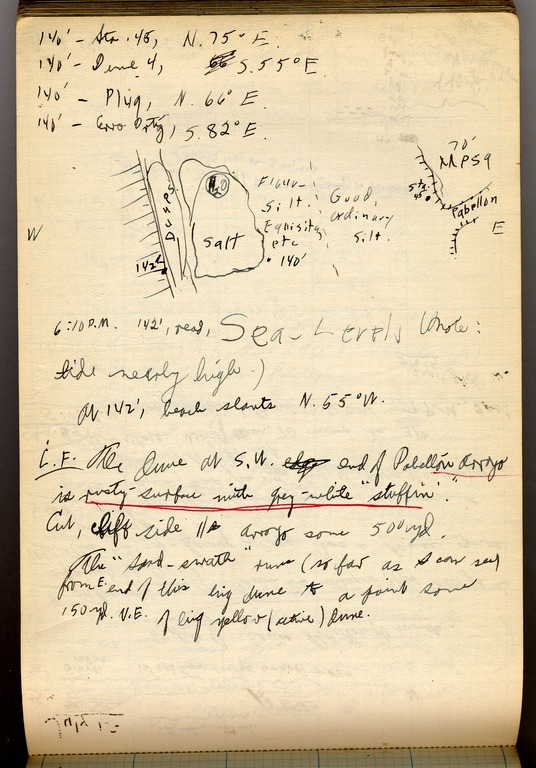 140' - Sta. 45, N. 75° E.
140' - Dune 4, S. 55° E.
140' - Plug, N. 66° E.
140' - Cerro Prty, S. 82° E.
70'
MPS9
Sta. 45
Pabellon
E
W
DUMPS
H2O
Salt
142'
140'
Silt.
Equisity
etc
Good,
ordinary
silt.
6:10 P.M. 142', read, Sea-Levels (note:
tide nearly high.)
At 142', beach slants N. 55° W.
L.F. The dune at S.W. end of Pabellón arroyo
is rusty-surface with grey-white "stuffin'."
Cut, cliff side arroyo some 500 yd.
The "sand-swath" runs (so far as I can see)
from E. end of this big dune to a point some
150 yd. N.E. of big yellow (active) dune.